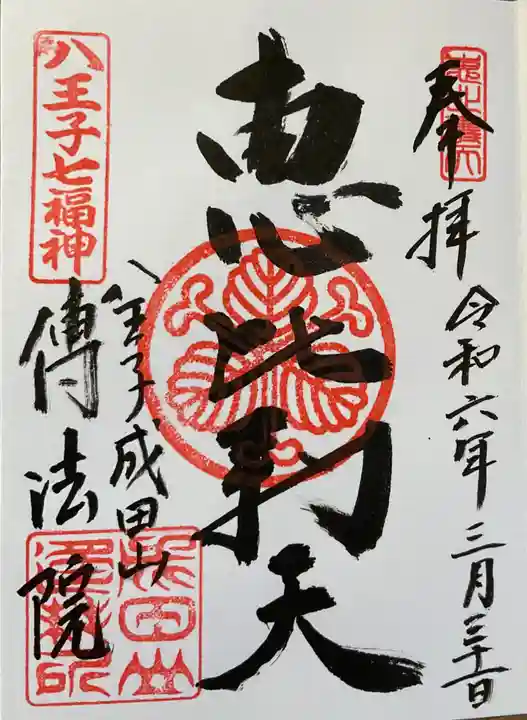 奉拝
令和六年三月三十一日
恵比寿天
八王子七福神
八王子成田山
傳法院